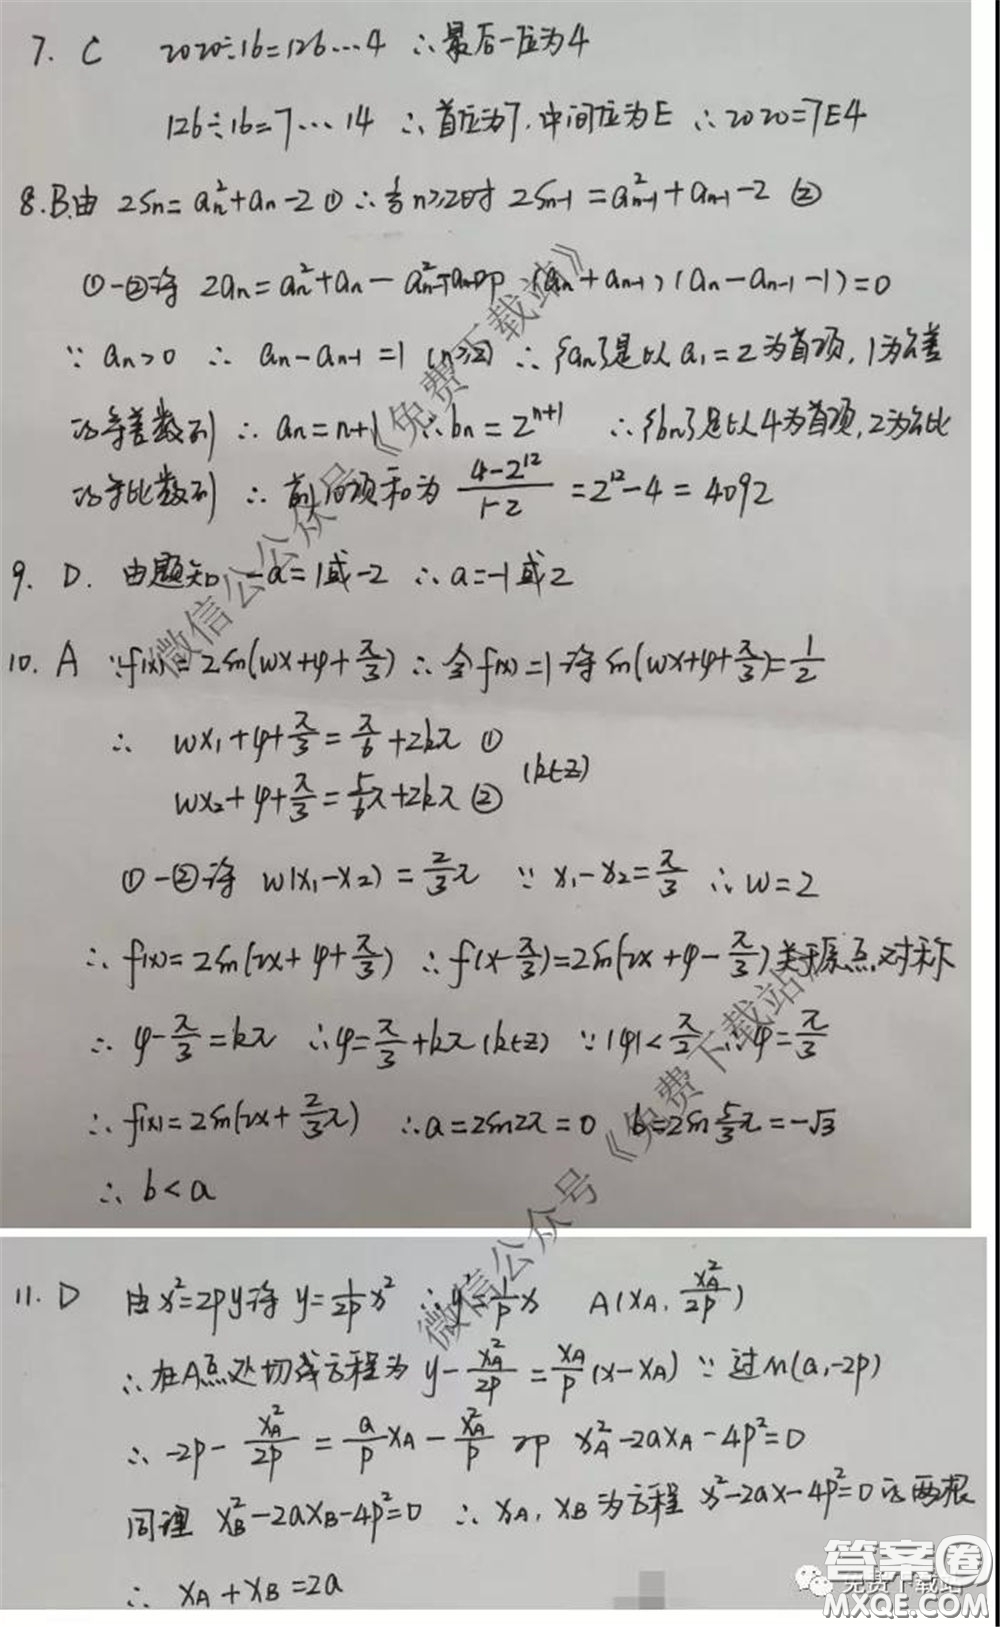 7. C 2020÷16=126…4 ∴最后一位为4
126÷16=7…14 ∴首位为7,中间位为E ∴2020=7E4
8.B.由 2Sn=an²+an-2 ① ∴当n≥2时 2Sn-1=an-1²+an-1-2 ②
①-②得 2an=an²+an-an-1²-an-1即 (an+an-1)(an-an-1-1)=0
∵an>0 ∴an-an-1=1 (n≥2) ∴{an}是以a1=2为首项,1为公差
的等差数列 ∴an=n+1 ∴bn=2^(n+1) ∴{bn}是以4为首项,2为公比
的等比数列 ∴前10项和为 (4-2^12)/(1-2) =2^12-4=4092
9. D. 由题知 -a=1或-2 ∴a=-1或2
10. A ∵f(x)=2sin(wx+φ+π/3) ∴令f(x)=1得 sin(wx+φ+π/3)=1/2
∴ wx1+φ+π/3=π/6+2kπ ①
(k∈z)
wx2+φ+π/3=5/6π+2kπ ②
①-②得 w(x1-x2)=2/3π ∵x1-x2=π/3 ∴w=2
∴f(x)=2sin(2x+φ+π/3) ∴f(x-π/3)=2sin(2x+φ-π/3)关于原点对称
∴φ-π/3=kπ ∴φ=π/3+kπ(k∈z) ∵|φ|<π/2 ∴φ=π/3
∴f(x)=2sin(2x+2/3π) ∴a=2sin2π=0 b=2sin5/3π=-√3
∴b<a
11. D 由x²=2py得 y=1/2p x² ∴y'=1/p x A(xA, xA²/2p)
∴在A点处切线方程为 y-xA²/2p=xA/p(x-xA) ∵过M(a,-2p)
∴-2p-xA²/2p=a/p xA-xA²/p 即 xA²-2axA-4p²=0
同理 xB²-2axB-4p²=0 ∴xA,xB为方程 x²-2ax-4p²=0的两根
∴ xA+xB=2a
微信公众号《免费下载站》
微信公众号《免费下载站》
答案圈
免费下载站
MXQE.COM